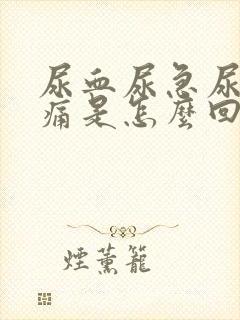 尿血尿急尿
痛是怎麼回
煙薰籠